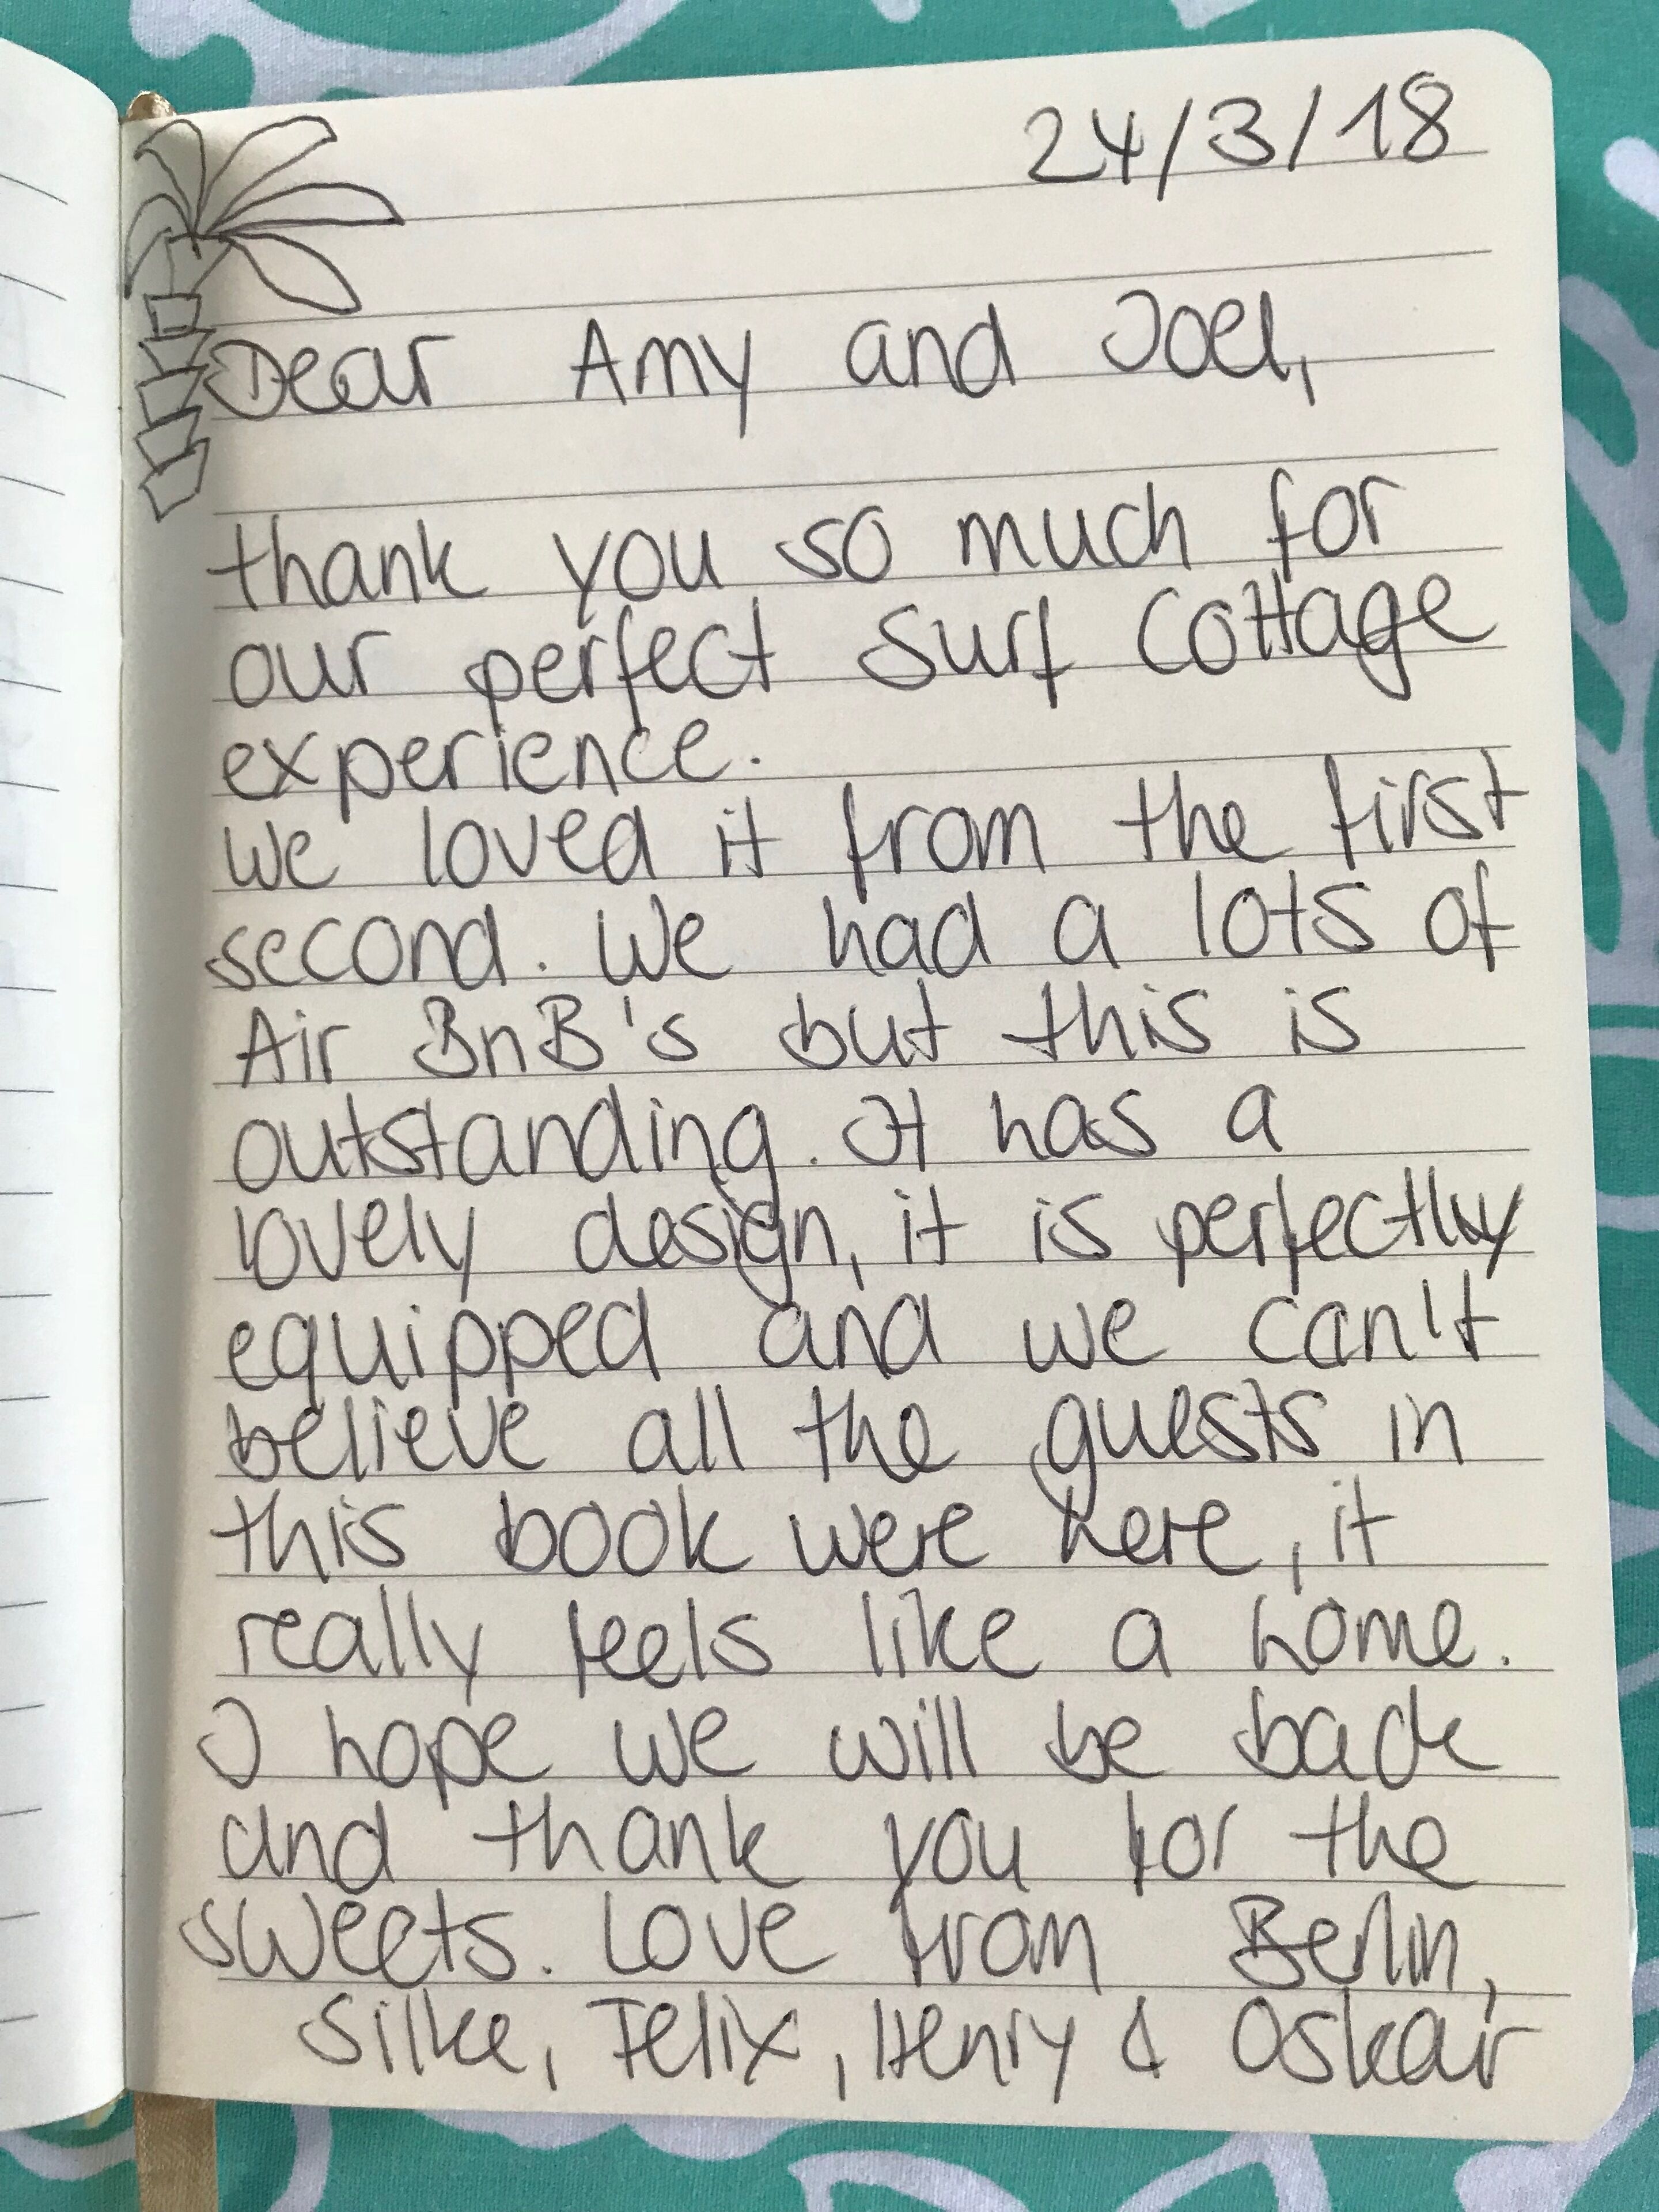 24/3/18
Dear Amy and Joel,
thank you so much for
our perfect Surf Cottage
experience.
We loved it from the first
second. We had a lots of
Air BnB's but this is
outstanding. It has a
lovely design, it is perfectly
equipped and we can't
believe all the guests in
this book were here, it
really feels like a home.
I hope we will be back
and thank you for the
sweets. Love from Berlin,
Silke, Felix, Henry & Oskar